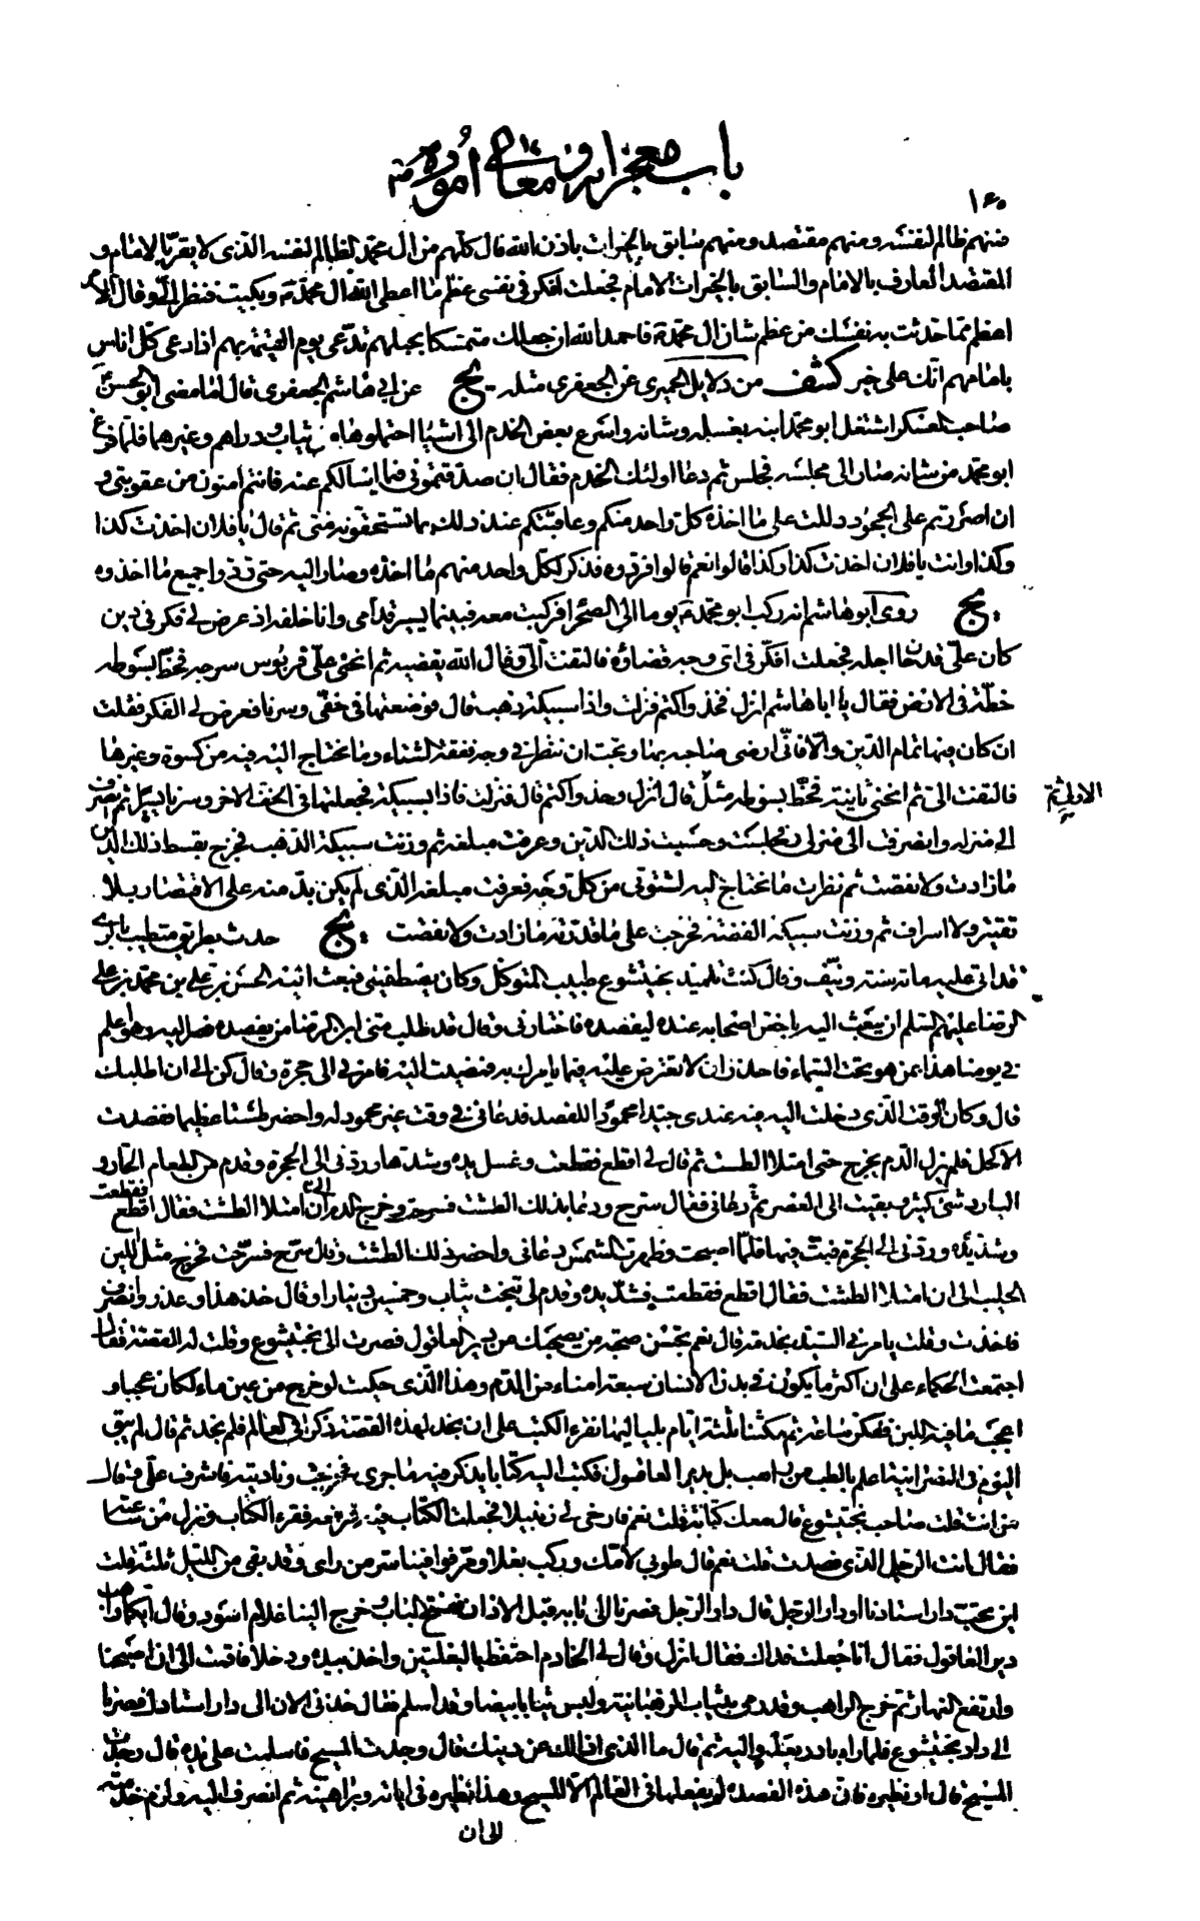 باب معجزاته ومعالي أموره
١٤٠
فمنهم ظالم لنفسه ومنهم مقتصد ومنهم سابق بالخيرات باذن الله قال كلهم من ال محمد الظالم لنفسه الذى لا يقر بالامام و
المقتصد العارف بالامام والسابق بالخيرات الامام فجعلت افكر في نفسى عظم ما اعطى الله ال محمد ع وبكيت فنظر الىّ وقال الامر
اعظم مما حدثت به نفسك من عظم شان ال محمد ع فاحمد الله ان جعلك متمسكا بحبلهم تدعى يوم القيمة بهم اذا دعى كل اناس
بامامهم انك على خير كشف من دلايل الحميرى عن الجعفرى مثله يج عن ابى هاشم الجعفرى قال لما مضى ابو الحسن ع
صاحب العسكر اشتغل ابو محمد ابنه بغسله وشانه واسرع بعض الخدم الى اشياء احتملوها من ثياب ودراهم وغيرهما فلما فرغ
ابو محمد من شانه صار الى مجلسه فجلس ثم دعا اولئك الخدم فقال ان صدقتمونى فيما اسالكم عنه فانتم امنون من عقوبتى و
ان اصررتم على الجحود دللت على ما اخذه كل واحد منكم وعاقبتكم عند ذلك بما تستحقونه منى ثم قال يا فلان اخذت كذا
وكذا وانت يا فلان اخذت كذا وكذا قالوا نعم قالوا فردوه فذكر لكل واحد منهم ما اخذه وصار اليه حتى ردوا جميع ما اخذوه
يج روى ابو هاشم انه ركب ابو محمد ع يوما الى الصحرا فركبت معه فبينما يسير قدامى وانا خلفه اذ عرض لى فكر في دين
كان علىّ قد حان اجله فجعلت افكر في اى وجه قضاؤه فالتفت الىّ وقال الله يقضيه ثم انحنى على قربوس سرجه فخط بسوطه
خطة في الارض فقال يا ابا هاشم انزل فخذ واكتم فنزلت واذا سبيكة ذهب قال فوضعتها في خفى وسرنا فعرض لى الفكر فقلت
ان كان فيها تمام الدين والا فانى ارضى صاحبه بها ويجب ان ننظر في وجه نفقة الشتاء وما نحتاج اليه فيه من كسوة وغيرها
فالتفت الى ثم انحنى ثانية فخط بسوطه مثل قال انزل وخذ واكتم قال فنزلت فاذا بسبيكة فجعلتها في الخف الاخر وسرنا يسيرا ثم انصرف
الاولى ثم
الى منزله وانصرفت الى منزلى فجلست وحسبت ذلك الدين وعرفت مبلغه ثم وزنت سبيكة الذهب فخرج بقسط ذلك الدين
ما زادت ولا نقصت ثم نظرت ما نحتاج اليه لشتوتى من كل وجه فعرفت مبلغه الذى لم يكن بدّ منه على الاقتصاد بلا
تقتير ولا اسراف ثم وزنت سبيكة الفضة فخرجت على ما قدرته ما زادت ولا نقصت يج حدث بطريق متطبب بالرى
قد اتى عليه مائة سنة ونيف وقال كنت تلميذ بختيشوع طبيب المتوكل وكان يصطفينى فبعث اليه الحسن بن على بن محمد بن على
الرضا عليهم السلم ان يبعث اليه باخص اصحابه عنده ليفصده فاختارنى وقال قد طلب منى ابن الرضا من يفصده فصر اليه وهو اعلم
في يومنا هذا بمن هو تحت السماء فاحذر ان لا تعترض عليه فيما يامرك به فمضيت اليه فامر بى الى حجرة وقال كن الى ان اطلبك
قال وكان الوقت الذى دخلت اليه فيه عندى جيدا محمودا للفصد فدعانى في وقت غير محمود له واحضر طشتا عظيما ففصدت
الاكحل فلم يزل الدم يخرج حتى امتلا الطشت ثم قال لى اقطع فقطعت وغسل يده وشدها وردنى الى الحجرة وقدم من الطعام الحار و
البارد شئ كثير وبقيت الى العصر ثم دعانى فقال سرح ودعا بذلك الطشت فسرحت وخرج الدم الى ان امتلا الطشت فقال اقطع فقطعت
وشد يده وردنى الى الحجرة فبت فيها فلما اصبحت وظهرت الشمس دعانى واحضر ذلك الطشت وقال سرح فسرحت فخرج مثل اللبن
الحليب الى ان امتلا الطشت فقال اقطع فقطعت وشد يده وقدم لى بتخت ثياب وخمسين دينارا وقال خذ هذا واعذر وانصرف
فاخذت وقلت يامرنى السيد بخدمة قال نعم تحسن صحبة من يصحبك من دير العاقول فصرت الى بختيشوع وقلت له القصة فقال
اجتمعت الحكماء على ان اكثر ما يكون في بدن الانسان سبعة امناء من الدم وهذا الذى حكيت لو خرج من عين ماء لكان عجبا و
اعجب ما فيه اللبن ففكر ساعة ثم مكثنا ثلثة ايام بلياليها نقرء الكتب على ان نجد لهذه القصة ذكرا في العالم فلم نجد ثم قال لم يبق
اليوم في النصرانية اعلم بالطب من راهب بدير العاقول فكتب اليه كتابا يذكر فيه ما جرى فخرجت وناديته فاشرف علىّ فقال
من انت قلت صاحب بختيشوع قال معك كتابه قلت نعم فارخى لى زنبيلا فجعلت الكتاب فيه فرفعه فقرء الكتاب ونزل من ساعته
فقال انت الرجل الذى فصدت قلت نعم قال طوبى لامك وركب بغلا ومر فوافينا سر من راى وقد بقى من الليل ثلثه قلت
اين تحب دار استادنا او دار الرجل قال دار الرجل فصرنا الى بابه قبل الاذان ففتح الباب وخرج الينا غلام اسود وقال ايكما راهب
دير العاقول فقال انا جعلت فداك فقال انزل وقال لى الخادم احتفظ بالبغلتين واخذ بيده ودخلا فاقمت الى ان اصبحنا
وارتفع النهار ثم خرج الراهب وقد رمى بثياب الرهبانية ولبس ثيابا بيضا وقد اسلم فقال خذنى الان الى دار استادك فصرنا
الى دار بختيشوع فلما راه بادر يعدو اليه ثم قال ما الذى ازالك عن دينك قال وجدت المسيح فاسلمت على يده قال وجدت
المسيح قال او نظيره فان هذه الفصدة لم يفعلها في العالم الا المسيح وهذا نظيره في اياته وبراهينه ثم انصرف اليه ولزم خدمته
الى ان